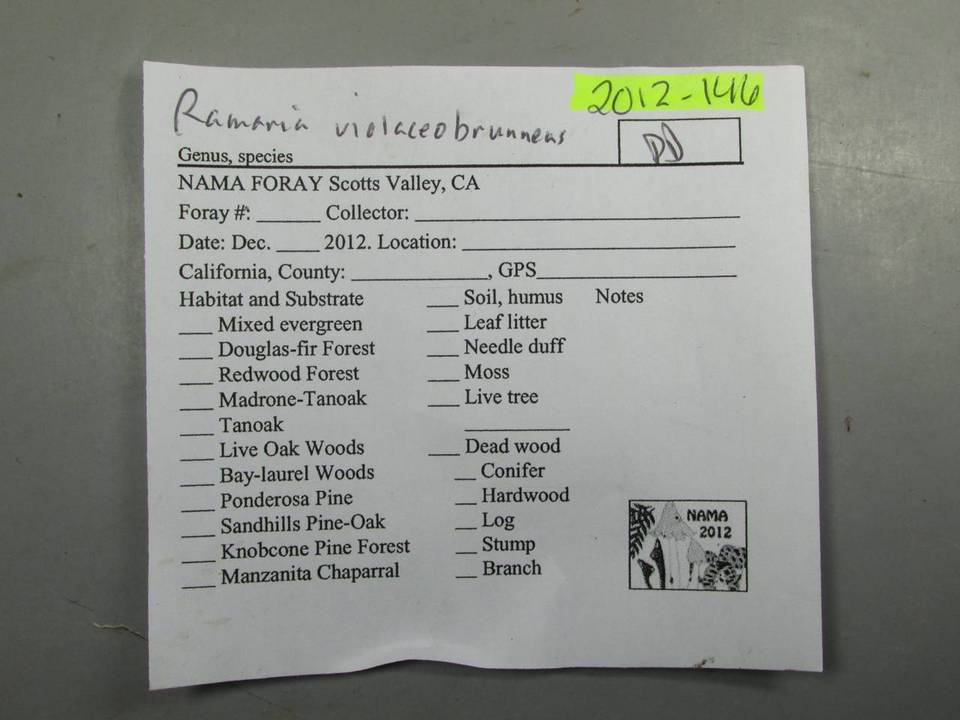 2012-146
Ramaria violaceobrunneus
DD
Genus, species
NAMA FORAY Scotts Valley, CA
Foray #: ______ Collector: ______
Date: Dec. ____ 2012. Location: ______
California, County: ______, GPS______
Habitat and Substrate ___ Soil, humus Notes
___ Mixed evergreen ___ Leaf litter
___ Douglas-fir Forest ___ Needle duff
___ Redwood Forest ___ Moss
___ Madrone-Tanoak ___ Live tree
___ Tanoak ______
___ Live Oak Woods ___ Dead wood
___ Bay-laurel Woods __ Conifer
___ Ponderosa Pine __ Hardwood
___ Sandhills Pine-Oak __ Log
___ Knobcone Pine Forest __ Stump
___ Manzanita Chaparral __ Branch
NAMA
2012